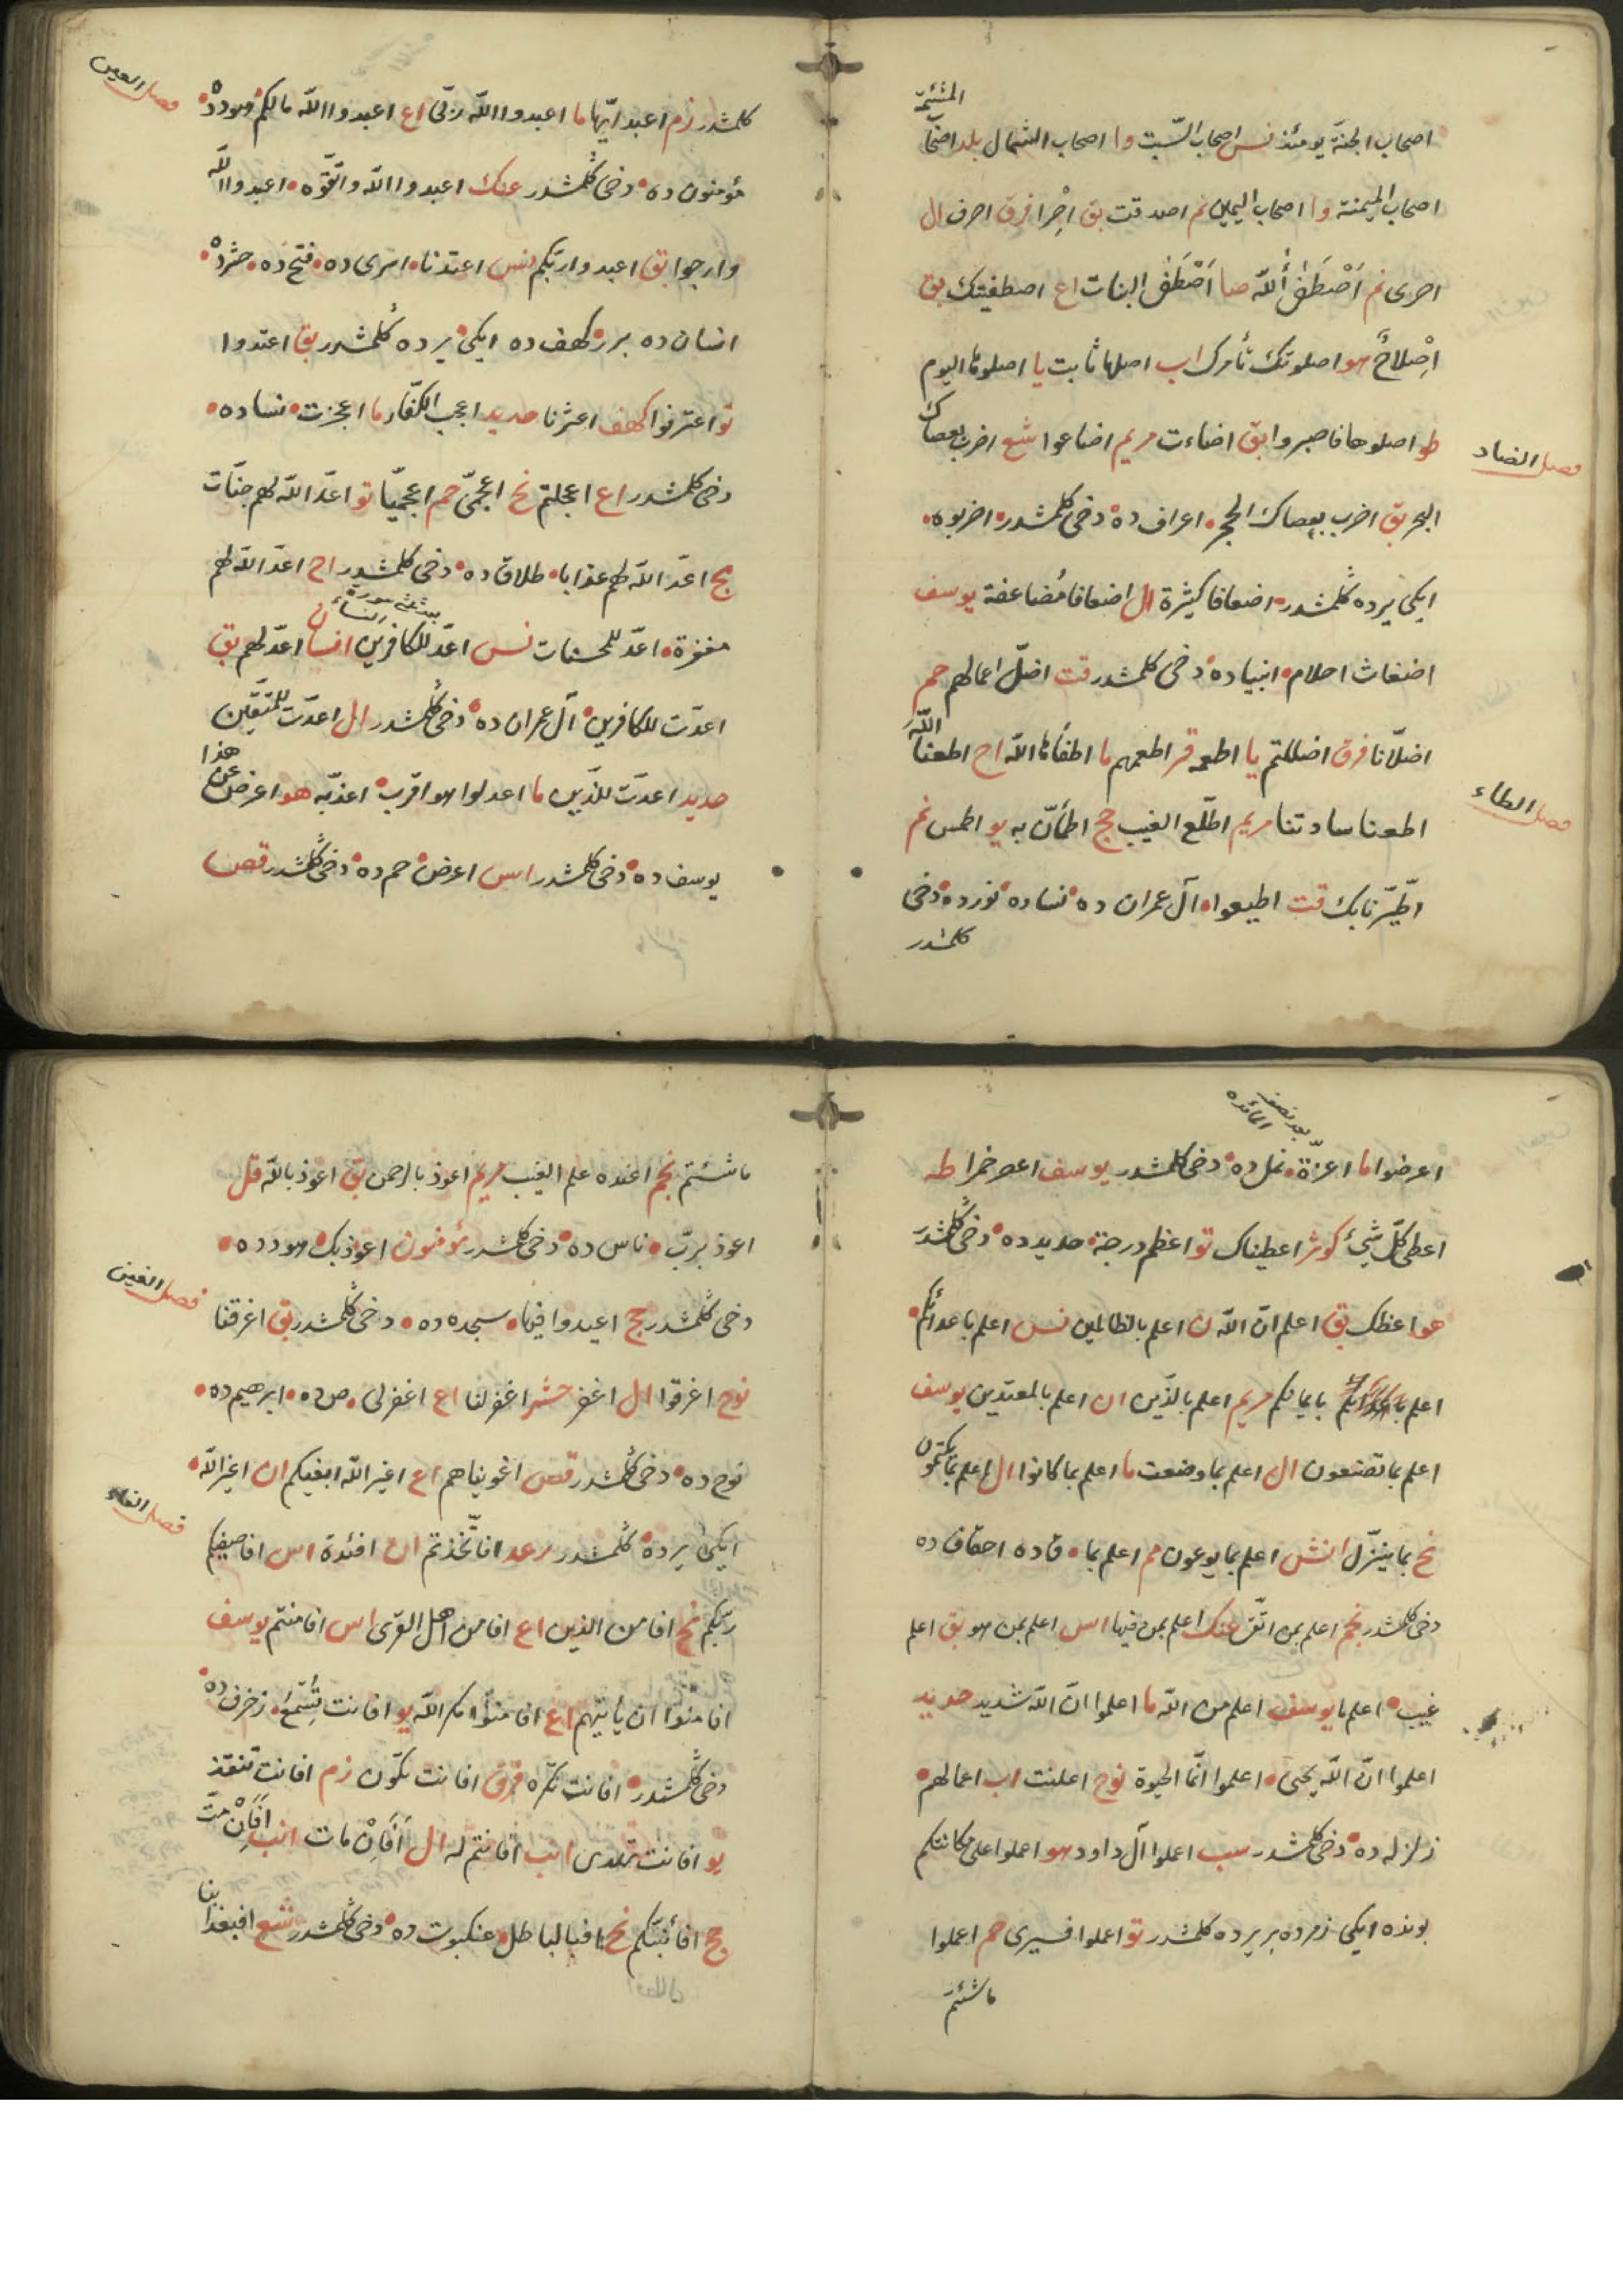 المشئمة
اصحاب الجنة يومئذ نس اصحاب السّبت وا اصحاب الشمال بلد اصحاب
اصحاب الميمنة وا اصحاب اليمين نم اصدقت بق اِصْرا فرق اصرف ال
اصرى نم اَصْطَفٰى ٱللّه صا اَصْطَفَى البنات اع اصطفيتك بق
اِصْلاحٌ هو اصلوتك تأمرك اب اصلها ثابت يا اصلوها اليوم
فصل الضاد
طو اصلوها فاصبروا بق اضاءت مريم اضاعوا شع اضرب بعصاك
البحر بق اضرب بعصاك الحجر • اعراف ده • دخى كلمشدر • اضربوه •
ايكى يرده كلمشدر • اضعافا كثيرة ال اضعافا مُضاعفة يوسف
اضغاث احلام • انبياده • دخى كلمشدر قت اضلّ اعمالهم حم
اضلّانا فرق اضللتم يا اطعمه قر اطعمهم ما اطفأها اللّه اح اطعنا اللّهَ
فصل الطاء
اطعنا سادتنا مريم اطّلع الغيب حج اطمأنّ به يو اطمس نم
اطّيّرنا بك قت اطيعوا • آل عمران ده • نساده • نورده • دخى
كلمشدر
فصل العين
كلمشدر زم اعبد ايّها ما اعبدوا اللّه ربّى اع اعبدوا اللّه مالكم • هودده •
مؤمنون ده • دخى كلمشدر عنك اعبدوا اللّه واتّقوه • اعبدوا اللّه
وارجوا بق اعبدوا ربّكم نس اعتدنا • اسرى ده • فتح ده • حشرده •
انسان ده برر • كهف ده ايكى يرده كلمشدر بق اعتدوا
تو اعترفوا كهف اعثرنا حديد اعجب الكفّار ما اعجزت • نساده •
دخى كلمشدر اع اعجلتم نح اعجمىّ حم اعجميّا تو اعدّ اللّه لهم جنّات
مج اعدّ اللّه لهم عذابا • طلاق ده • دخى كلمشدر اح اعدّ اللّه لهم
مغفرة • اعدّ للمحسنات نس اعدّ للكافرين انسان اعدّ لهم بق
اعدّت للكافرين • آل عمران ده • دخى كلمشدر ال اعدّت للمتّقين
حديد اعدّت للذين ما اعدلوا هو اقرب • اعذّبه هو اعرض عن هذا
يوسف ده • دخى كلمشدر اس اعرض • حم ده • دخى كلمشدر قص
بعد نصف المائده
اعرضوا ما اعزّة • نمل ده • دخى كلمشدر يوسف اعصر خمرا طه
اعطى كلّ شئ كوثر اعطيناك تو اعظم درجة • حديدده • دخى كلمشدر
هو اعظك بق اعلم انّ اللّه ان اعلم بالظالمين نس اعلم باعدائكم •
اعلم بايمانكم مريم اعلم بالذين ان اعلم بالمعتدين يوسف
اعلم بما تصنعون ال اعلم بما وضعت ما اعلم بما كانوا ال اعلم بما يكتمون
نح بما ينزّل انش اعلم بما يوعون مم اعلم بما • ق ده احقاف ده
دخى كلمشدر نجم اعلم بمن اتّقى عنك اعلم بمن فيها اس اعلم بمن هو بق اعلم
غيب • اعلم ما يوسف اعلم من اللّه ما اعلموا انّ اللّه شديد حديد
اعلموا انّ اللّه يحيى • اعلموا انّما الحيوة نوح اعلنت اب اعمالهم •
زلزله ده • دخى كلمشدر سب اعملوا آل داود هو اعملوا على مكانتكم
بونده ايكى زمرده بر يرده كلمشدر تو اعملوا فسيرى حم اعملوا
ما شئتم
ما شئتم نجم اعنده علم الغيب مريم اعوذ بالرحمن بق اعوذ باللّه قل
اعوذ بربّ • ناس ده • دخى كلمشدر مؤمنون اعوذ بك • هودده •
فصل الغين
دخى كلمشدر حج اعيدوا فيها • سجده ده • دخى كلمشدر بق اغرقنا
نوح اغرقوا ال اغفر حشر اغفر لنا اع اغفر لى • ص ده • ابرهيم ده •
نوح ده • دخى كلمشدر قص اغويناهم اع اغير اللّه ابغيكم ان اغير اللّه •
فصل الفاء
ايكى يرده • كلمشدر رعد افاتّخذتم ان افئدة اس افاصفيكم
ربّكم نح افامن الذين اع افامن اهل القرى اس افامنتم يوسف
افامنوا ان يأتيهم اع افامنوا مكر اللّه يو افانت تُسْمِعُ • زخرف ده •
دخى كلمشدر • افانت تكره فرق افانت تكون زم افانت تنقذ
يو افانت تهدى انب افانتم له ال اَفَاِنْ مات انب اَفَاِنْ متّ
حج افأنبّئكم نح افبالباطل • عنكبوت ده • دخى كلمشدر شع افبعذابنا